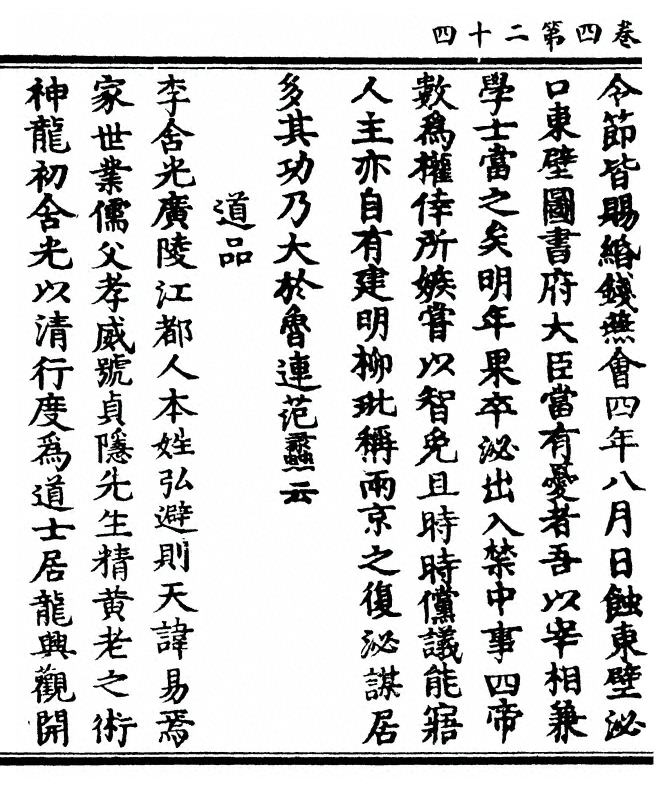 卷四第二十四
令節皆賜緡錢燕會四年八月日蝕東壁泌
口東壁圖書府大臣當有憂者吾以宰相兼
學士當之矣明年果卒泌出入禁中事四帝
數爲權倖所嫉嘗以智免且時時儻議能寤
人主亦自有建明柳玭稱兩京之復泌謀居
多其功乃大於魯連范蠡云
道品
李含光廣陵江都人本姓弘避則天諱易焉
家世業儒父孝威號貞隱先生精黄老之術
神龍初含光以清行度爲道士居龍興觀開